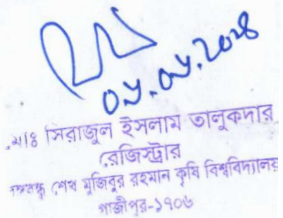 ০৯.০৯.২০২৪
মোঃ সিরাজুল ইসলাম তালুকদার
রেজিস্ট্রার
বঙ্গবন্ধু শেখ মুজিবুর রহমান কৃষি বিশ্ববিদ্যালয়
গাজীপুর-১৭০৬